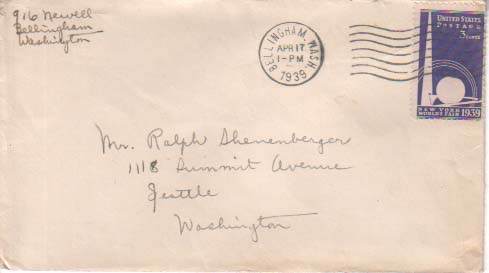 916 Newell
Bellingham
Washington
BELLINGHAM, WASH.
APR 17
1-PM
1939
UNITED STATES
POSTAGE
3 CENTS
NEW YORK
WORLD'S FAIR 1939
Mr. Ralph Shenenberger
1118 Summit Avenue
Seattle
Washington